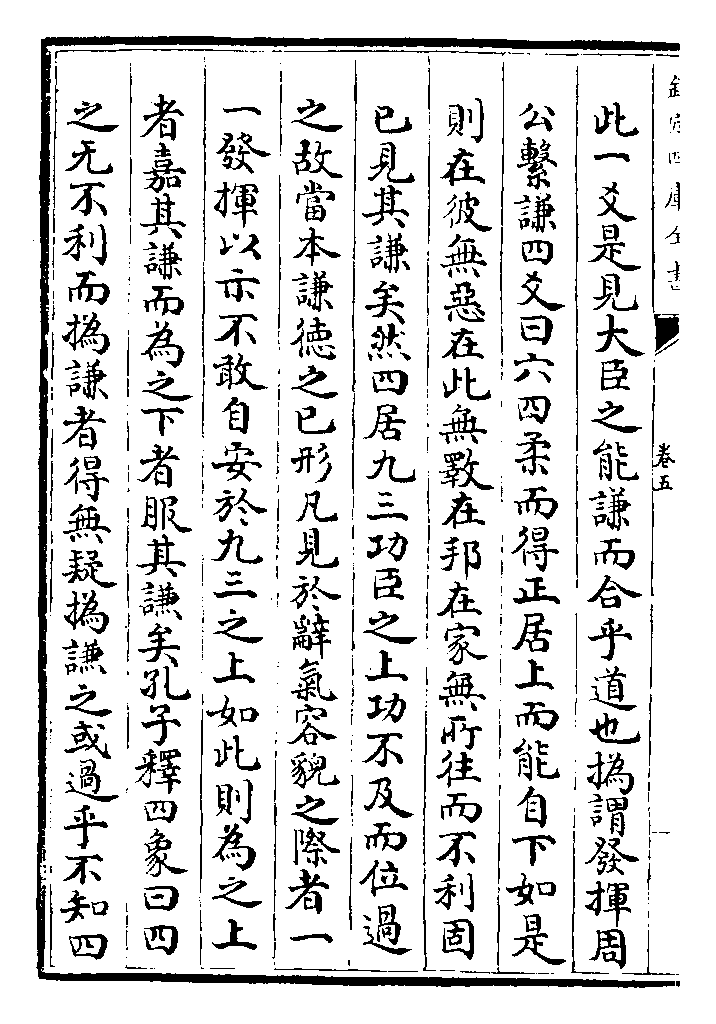 欽定四庫全書
卷五
此一爻是見大臣之能謙而合乎道也撝謂發揮周
公繫謙四爻曰六四柔而得正居上而能自下如是
則在彼無惡在此無斁在邦在家無所往而不利固
已見其謙矣然四居九三功臣之上功不及而位過
之故當本謙徳之已形凡見於辭氣容貌之際者一
一發揮以示不敢自安於九三之上如此則為之上
者嘉其謙而為之下者服其謙矣孔子釋四象曰四
之无不利而撝謙者得無疑撝謙之或過乎不知四